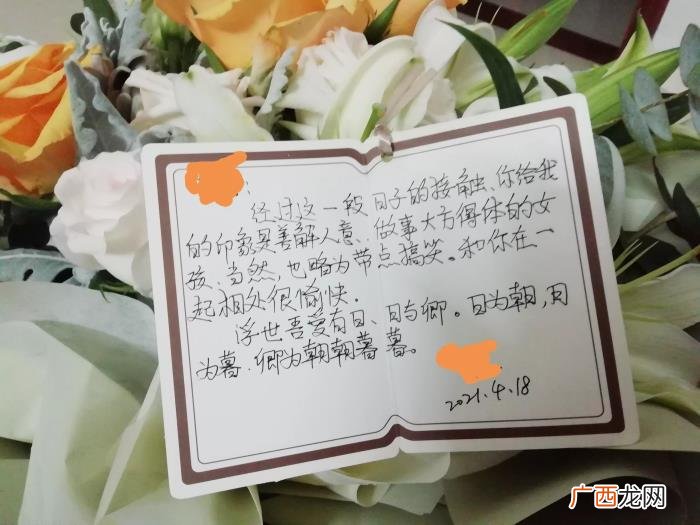 经过这一段日子的接触、你给我
的印象是善解人意、做事大方得体的女
孩、当然，也略为带点搞笑。和你在一
起相处很愉快.
浮世吾爱有日、日与卿。日为朝，月
为暮.卿为朝朝暮暮。
2021.4.18
广西龙网